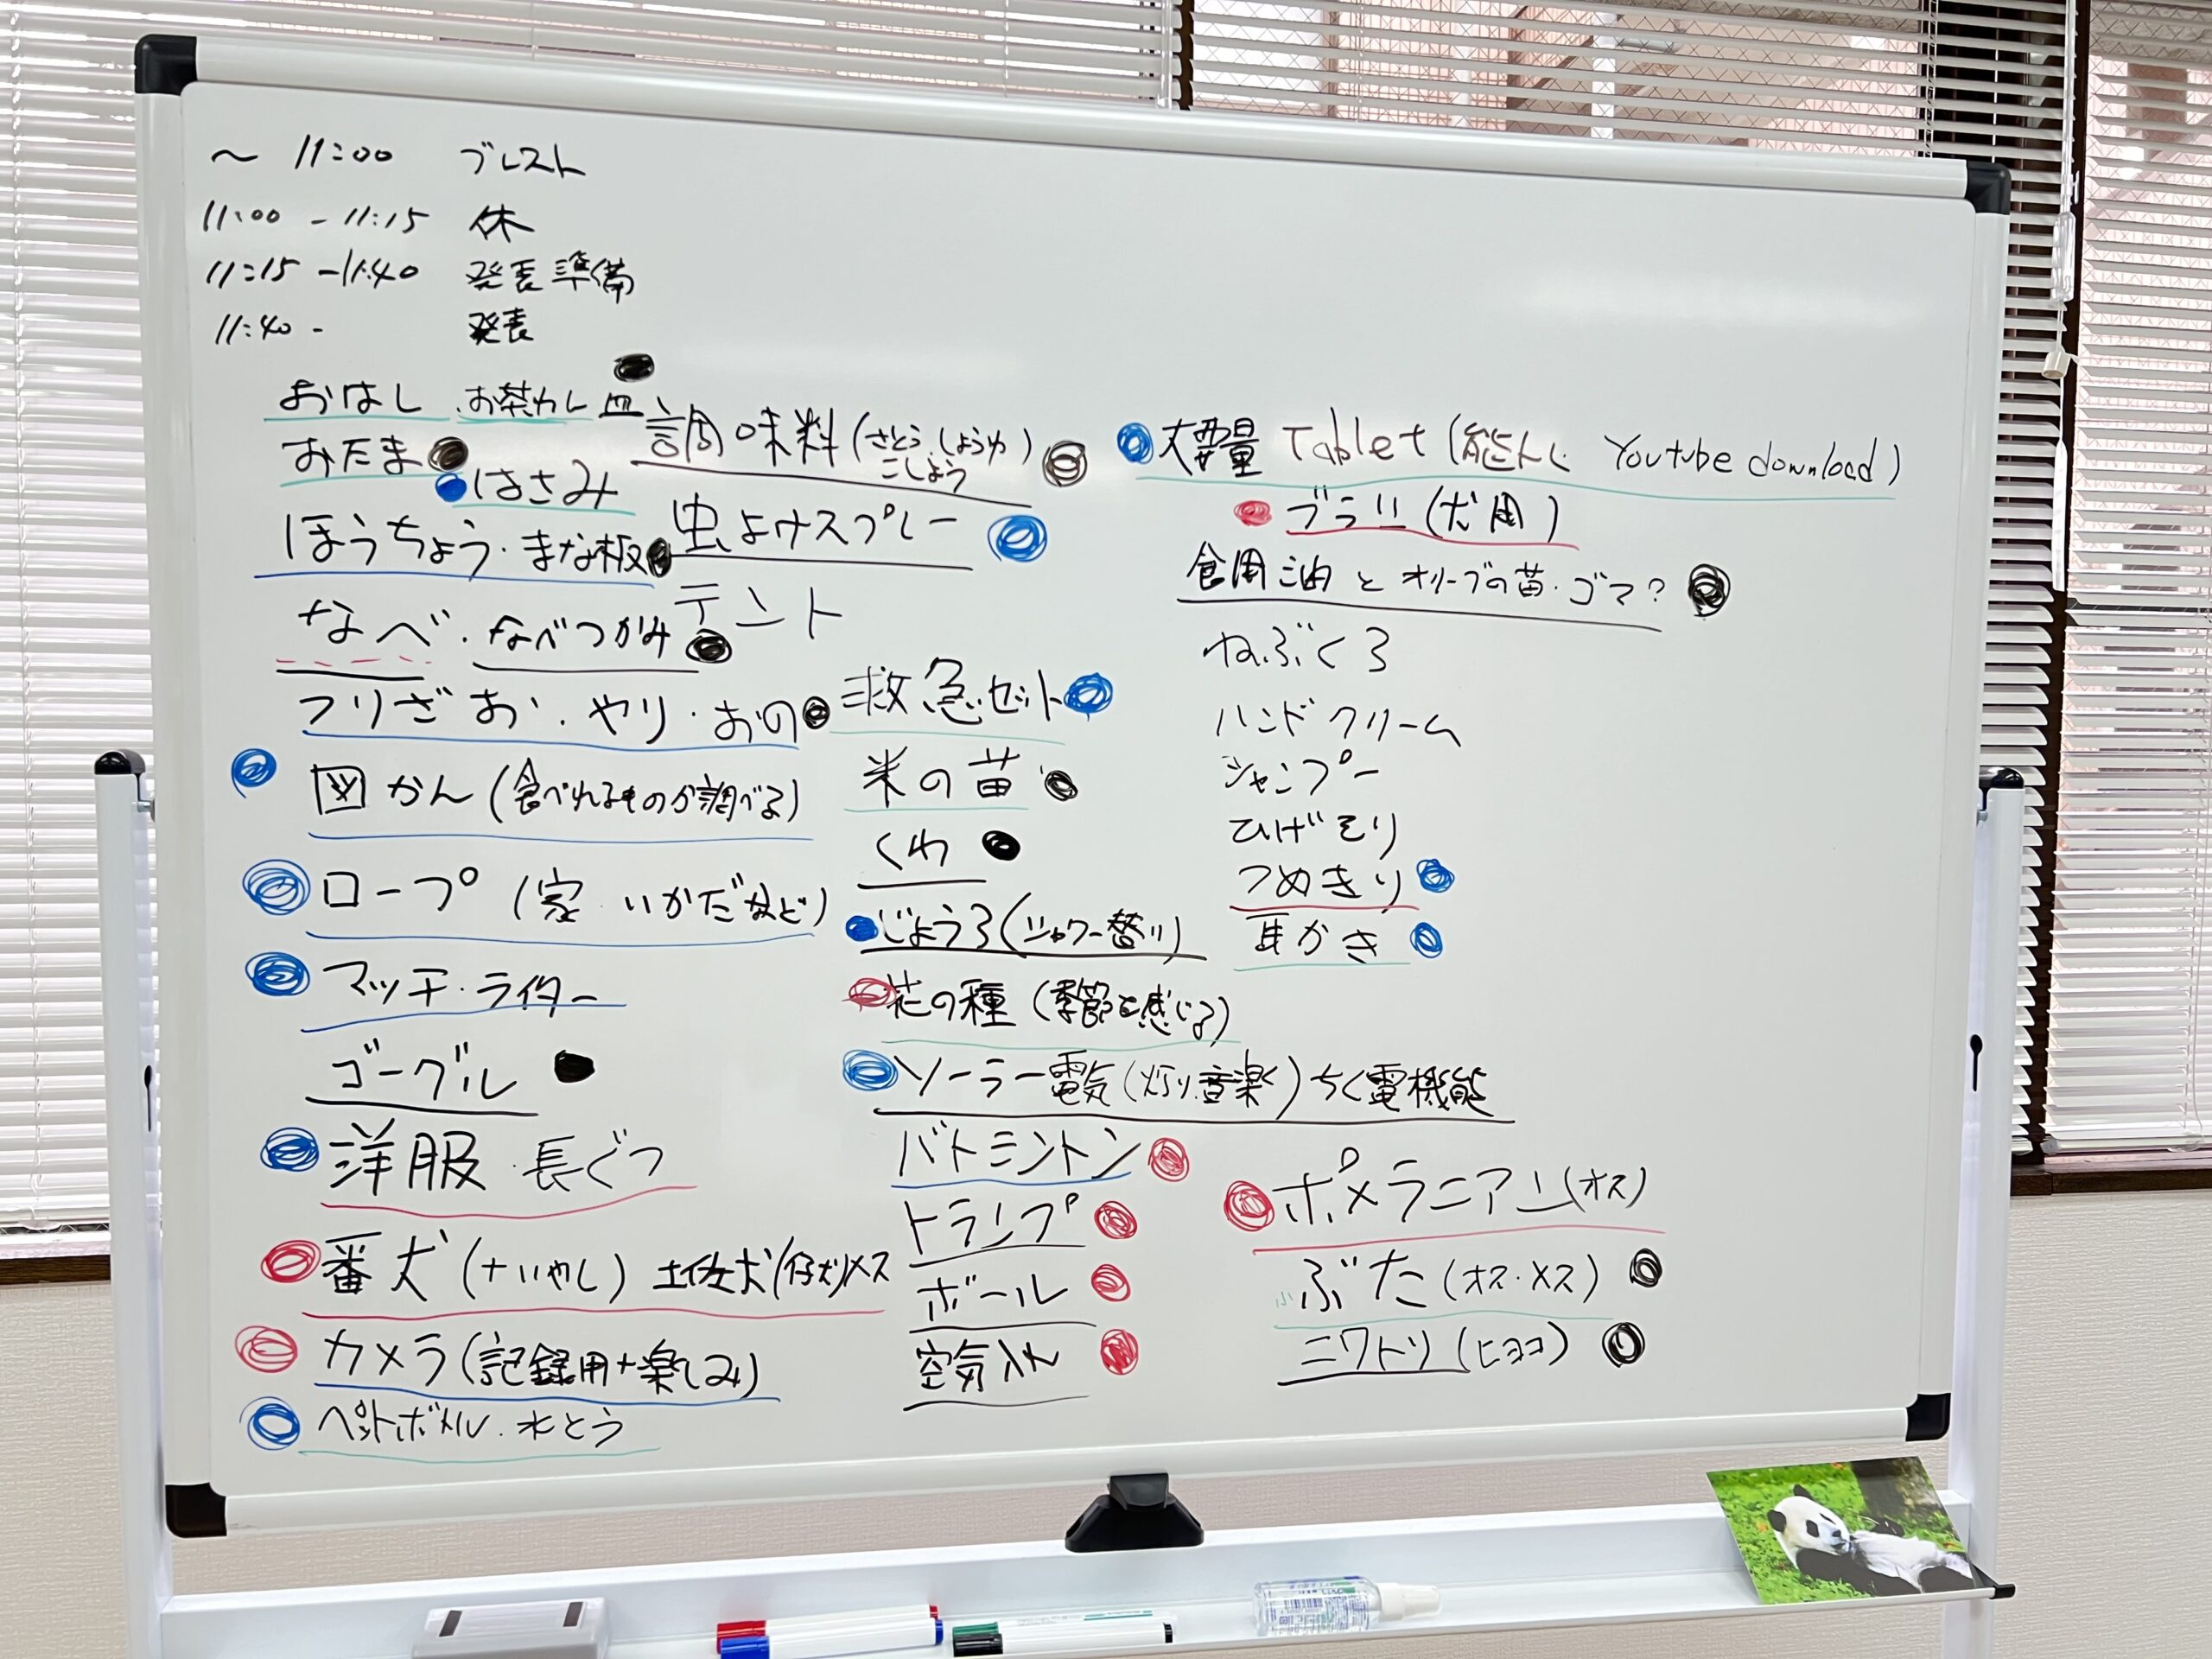 ～ 11:00 ブレスト
11:00 - 11:15 休
11:15 - 11:40 発表準備
11:40 - 発表
おはし ・お茶わん 皿
おたま
はさみ
ほうちょう・まな板
なべ・なべつかみ
つりざお・やり・おの
図かん(食べれるものか調べる)
ロープ (家 いかだなど)
マッチ・ライター
ゴーグル
洋服・長ぐつ
番犬(+いやし) 土佐犬(仔犬)メス
カメラ(記録用+楽しみ)
ペットボトル・水とう
調味料(さとう、しょうゆ
こしょう)
虫よけスプレー
テント
救急セット
米の苗
くわ
じょうろ(シャワー替り)
花の種(季節を感じる)
ソーラー電気(灯り、音楽)ちく電機能
バトミントン
トランプ
ボール
空気入れ
大容量 Tablet (Youtube download)
ブラシ(犬用)
食用油 と オリーブの苗・ゴマ?
ねぶくろ
ハンドクリーム
シャンプー
ひげそり
つめきり
耳かき
ポメラニアン(オス)
ぶた(オス・メス)
ニワトリ(ヒヨコ)